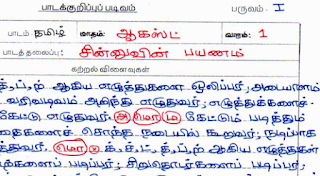 பாடக்குறிப்புப் படிவம்
பருவம் : I
பாடம் தமிழ் மாதம்: ஆகஸ்ட் வாரம்: 1
பாடத் தலைப்பு: சின்னுவின் பயணம்
கற்றல் விளைவுகள்
த், ப், ற் ஆகிய எழுத்துகளை ஒலிப்பர்; அடையாளம்
வரிவடிவம் அறிந்து எழுதுவர்; எழுத்துக்களைச்
கேட்டு எழுதுவர். கேட்டும் படித்தும்
தைகளைச் சொந்த நடையில் கூறுவர்; நடிப்பாக
த்துவர். க், ச், ட், த், ப், ற் ஆகிய எழுத்துகள்
ழ்களைப் படிப்பர்; சிறுதொடர்களைப் படிப்பர்;